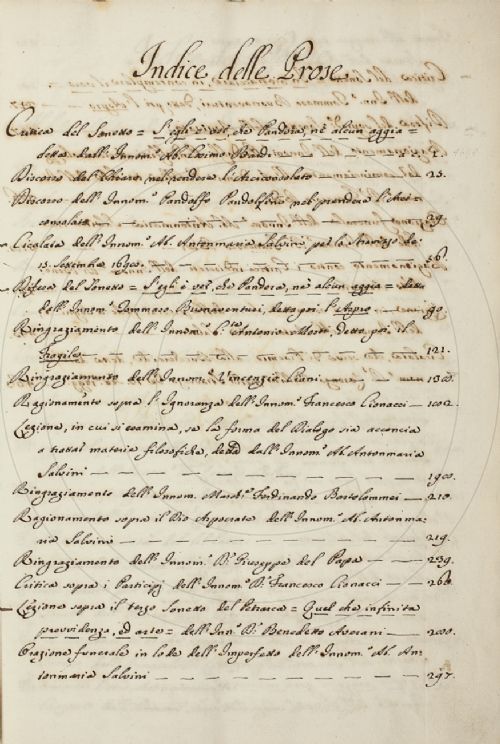 Indice delle Prose
Critica del Sonetto = S'egli è ver, che Pandora, nè alcun aggia =
detta dall' Innom.º Ab. Cosimo Bardi — 1.
Discorso del Chiaro nel prendere l'Arciconsolato — 25.
Discorso dell' Innom. Pandolfo Pandolfini nel prendere l'Arci-
consolato — 29.
Cicalata dell' Innom. Ab. Antonmaria Salvini per lo Stravizzo de'
13. Settembre
Difesa del Sonetto = S'egli è ver, che Pandora, nè alcun aggia = detta
dall' Innom.º Tommaso Buonaventuri, detto poi l'Aspro — 90.
Ringraziamento dell' Innom.º Antonio detto poi il
Fragile — 121.
Ringraziamento dell' Innom.º Vincenzio
Ragionamento sopra l'Ignoranza dell' Innom.º Francesco Cionacci
Lezione, in cui si esamina, se la forma del Dialogo sia acconcia
a trattar materia filosofiche, detta dall' Innom.º Ab. Antonmaria
Salvini
Ringraziamento dell' Innom. Ferdinando Bartolommei — 210.
Ragionamento sopra il Dio Arpocrate dell' Innom.º Ab. Antonma-
ria Salvini — 219.
Ringraziamento dell' Innom.º D.r Giuseppe del Papa — 239.
Critica sopra i Participj dell' Innom.º D.r Francesco Cionacci
Lezione sopra il terzo Sonetto del Petrarca = Quel che infinita
provvidenza, ed arte = dell' Inn.º D.r Benedetto Averani
Orazione funerale in lode dell' Imperfetto dell' Innom.º Ab. An-
tonmaria Salvini — 297.